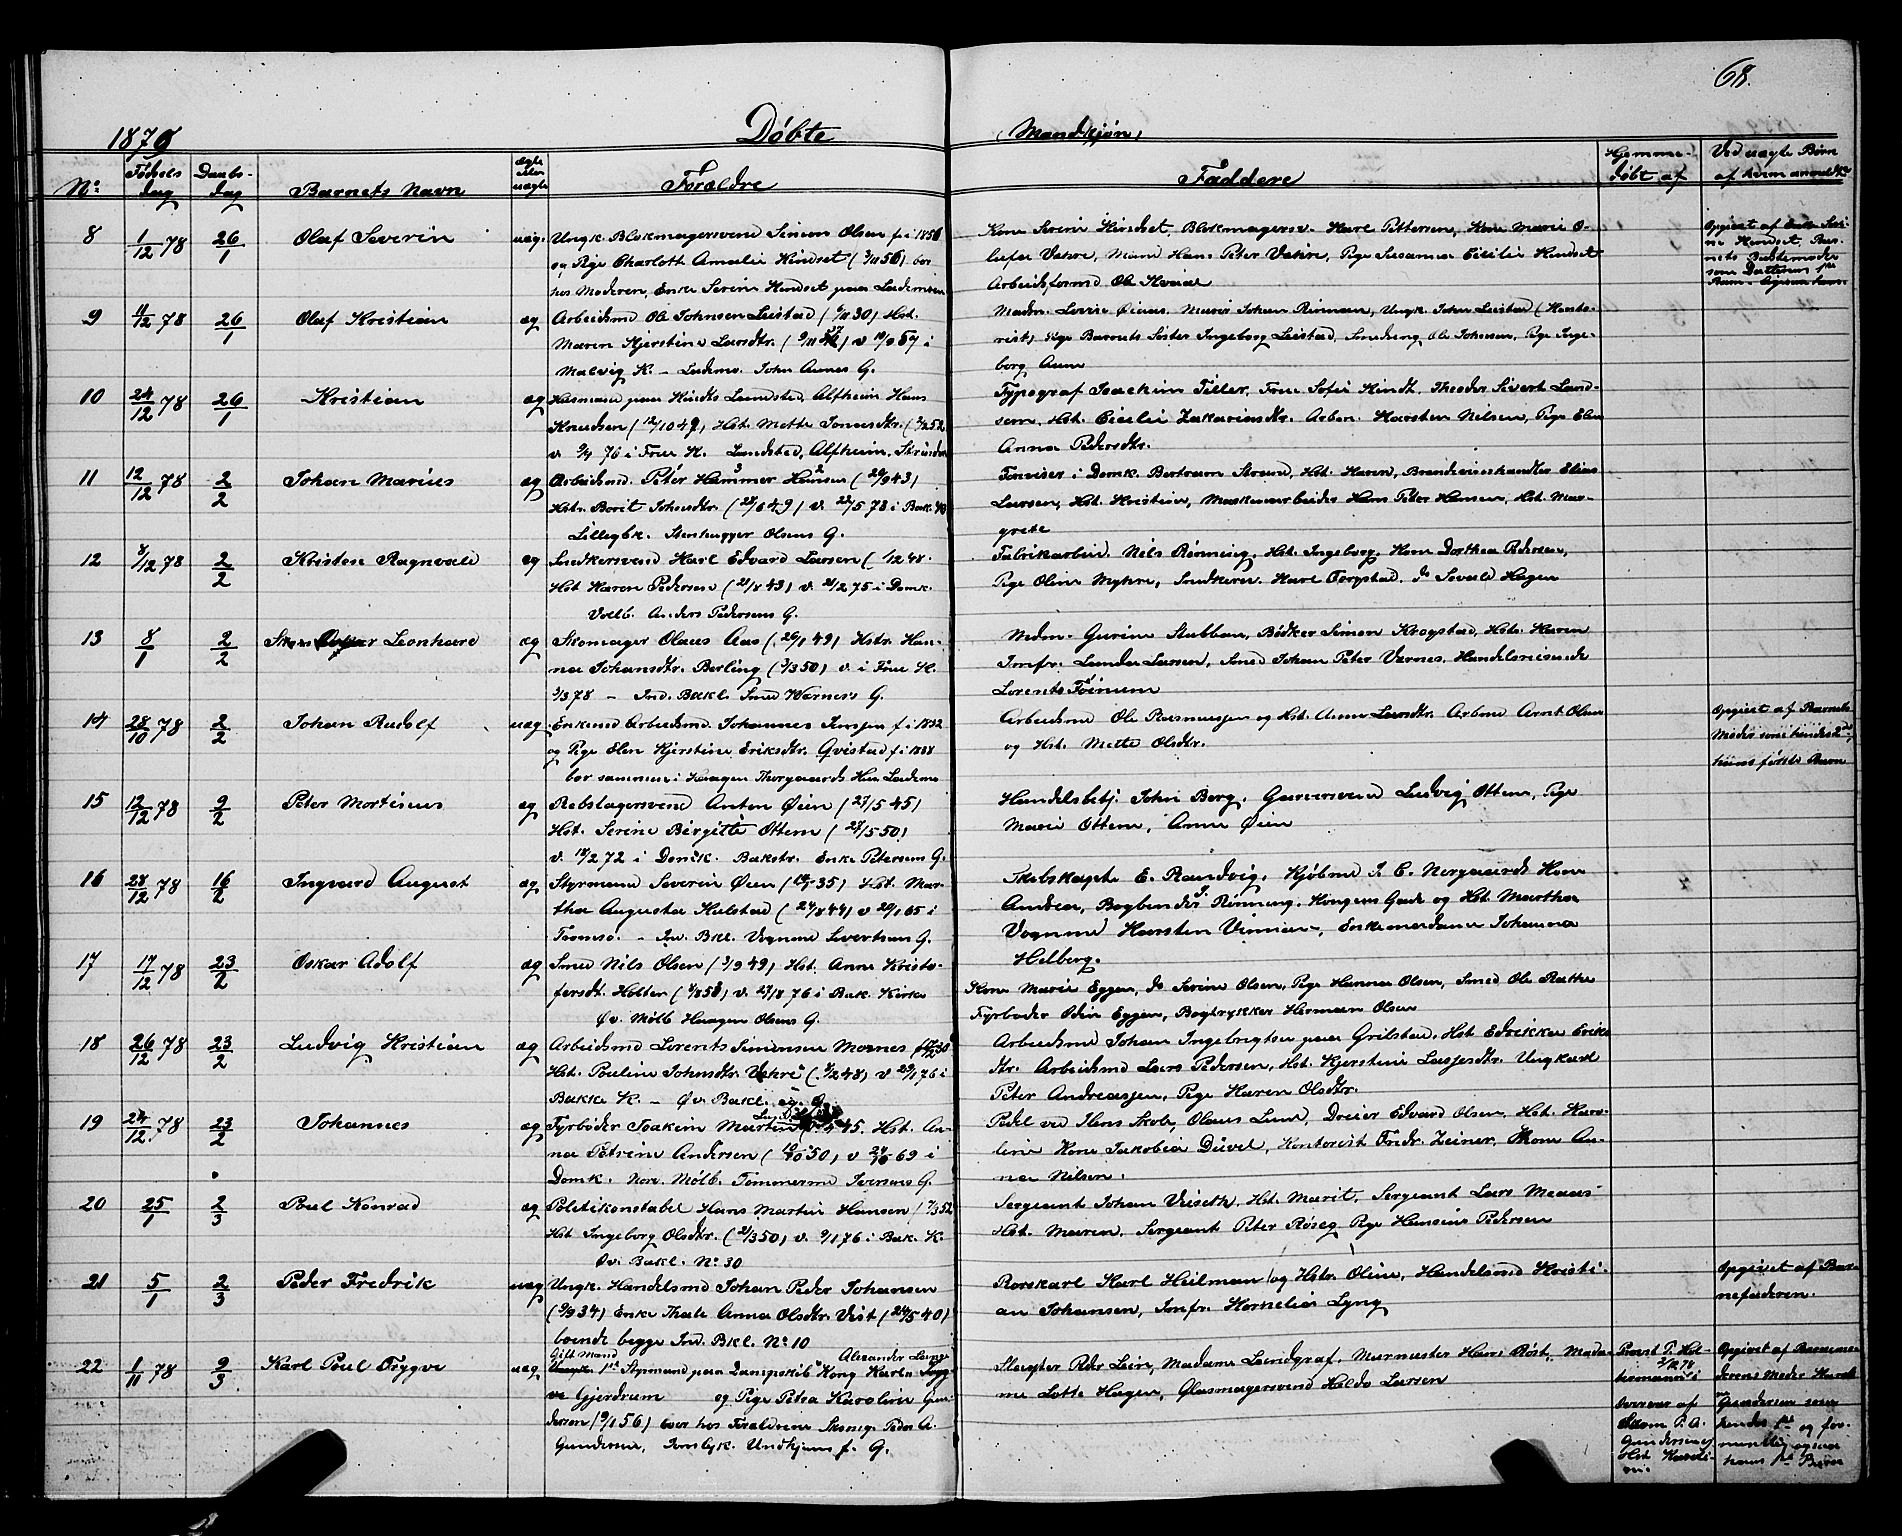 68.
1879
Døbte
Mandkjøn,
No
Fødselsdag
Daabsdag
Barnets Navn
ægte eller uægte
Forældre
Faddere
Hjemmedøbt af
Ved uægte Børn af hvem anmeldt
8 1/12 78 26/1 Olaf Severin uæg. Ungk. Blokmagersvend Simon Olsen f. i 1856
og Pige Charlotte Amalie Hindset ( /11 56) bor
hos Moderen, Enke Serine Hindset paa Lademoen
Kone Serine Hindset Blokmagersv. Karl Pettersen, Kone Marie O-
lufa Vakre, Mand Hans Peter Vakre, Pige Susanna Cicilie Hindset
Arbeidsformd Ole
Opgivet af Enke Seri-
ne Hindset, Bar-
nets Bedstemoder
som Datterens 1ste
Barn.
9 11/12 78 26/1 Olaf Kristian æg Arbeidsmd Ole Johnsen Leistad ( /11 30) Hst.
Maren Kjerstine Larsdtr. v. i
Malvig K. – Lademo. John Aunes G.
Madm. Lovise Øinas, Marie Johan Rønnan, Ungk. Johan Leistad (Konto-
rist) Pige Barnets Søster Ingeborg Leistad, Smedreng Ole Johnsen, Pige Inge-
borg Aune
10 24/12 78 26/1 Kristian æg Husmand paa Hindts Lundsted, Alfheim Hans
Knudsen (12/10 49) Hst. Mette Tomasdtr. ( /2 52
v. 9/4 76 i Frue K. Lundsted, Alfheim, Strinden
Typograf Joachim Tiller, Frue Sofie Hindt. Theodor Sivert Lund-
sem, Hst. Cicilie Zakariasdtr. Arbm. Karsten Nilsen, Pige Elen
Anna Pedersdtr.
11 12/12 78 2/2 Johan Marius æg Arbeidsmd. Peter Hammer Hansen (29/9 43)
Hstr. Borit Johnsdtr. (28/6 49) v. 28/5 78 i Bak.
Lillegbk. Stenhugger Olsens G.
Forviser i Domk. Bertram Strand, Hst. Karen, Brændevinshandler Elias
Larsen, Hst. Kristine, Maskinarbeider Hans Peter Hansen, Hst. Mar-
grete
12 8/12 78 2/2 Kristen Ragnvald æg Snedkersvend Karl Edvard Larsen ( /12 48.
Hst. Karen Pedersen (21/8 43) v. 21/2 75 i Domk.
Volb. Anders Pedersens G.
Fabrikarbm. Nils Rønning, Hst. Ingeborg. Kone Dorthea Pedersen,
Pige Oline Myhre, Snedkerne Karl Torgstad, do Sevald Hagen
13 8/1 2/2 Leonhard æg Skomager Olaus Aas (26/1 49) Hstr. Han-
na Johansdtr. Berling ( /3 50) v. i Frue K.
3/3 78 – Ind. Bakl. Smed Warnes's G.
Madm. Gurine Stubban, Bødker Simon Krogstad, Hst. Karen
Jomfr. Larsen, Smed Johan Peter Varnes, Handelsreisende
Lorents
14 28/10 78 2/2 Johan Rudolf uæg. Enkemd Arbeidsmd. Johannes Jensen f. i 1832
og Pige Elen Kjerstine Eriksdtr. Qvistad f. i 1838
bor sammen i Haagen Thorgaards Hus Lademo
Arbeidsmd Ole Rasmussen og Hst. Anna Larsdtr. Arbmd Arnt Olsen
og Hst. Mette Olsdtr.
Opgivet af Barnets
Moder som hendes 2det
hans første Barn
15 12/12 78 9/2 Peter Mortinus æg Rebslagersvend Anton Øien (27/5 45)
Hst. Serine Birgitte Ottem (27/5 50)
v. 18/2 72 i Domk. Bakstr. Enke Petersens G.
Handelsbetj. John Berg, Garversvend Ludvig Ottem, Pige
Marie Ottem, Anne Øien
16 28/12 78 16/2 Ingvard August æg Styrmand Severin Øien Hst. Mar-
tha Augusta Hulstad (24/8 44) v 20/1 65 i
Tromsø. – Ind. Bkl. Vognmd Sivertsens G.
Skibskapt. E. Randvig, Kjøbmd I. C. Norgaards Kone
Andrea, Bogbinder J. Rønning, Kongens Gade og Hst. Martha
Vognmd Karsten Vinnan, Enkemadame Johanna
Helberg.
17 17/12 78 23/2 Oskar Adolf æg Smed Nils Olsen ( /9 49) Hst. Anne Kristo-
fersdt. Holter ( /8 58) v. 27/8 76 i Bak. Kirke
Øv. Mølb Haagen Olsens G.
Kone Marie Eggen, do Serine Olsen, Pige Hanna Olsen, Smed Ole Rathe
Fyrbøder Odin Eggen, Bogtrykker Herman Olsen
18 26/12 78 23/2 Ludvig Kristian æg Arbeidsmd Lorents Simonsen Mornes
Hst. Pouline Johnsdtr. Vakre ( /2 48) v 29/1 76 i
Bakke K. – Øv. Bakl. eg. G.
Arbeidsmd Johan Ingebrigtsen paa Grilstad, Hst Edrikka Eriks
dtr. Arbeidsmd Lars Pedersen, Hst. Kjerstine Lassesdtr. Ungkarl
Peter Andreassen, Pige Karen Olsdtr.
19 24/12 78 23/2 Johannes æg Fyrbøder Joakim Martin 45. Hst. An-
na Petrine Andersen 50) v 69 i
Domk. Nore Mølb. Tømmermd Iversens G.
Pedel ved Ilens Skole, Olaus Lund, Dreier Edvard Olsen, Hst. Karo-
line Kone Jakobia Düvel, Kontorist Fredr. Zeiner, Kone An-
na Nilsen.
20 25/1 2/3 Poul Konrad æg Politikonstabel Hans Martin Hansen ( /3 52
Hst Ingeborg Olsdtr. (21/3 50) v. 9/1 76 i Bak. K.
Øv. Bakl. No 30
Sergeant Johan Veiseth, Hst. Marit, Sergeant Lars Meaas
Hst. Maren, Sergeant Peter Røseg Pige Hansine Pedersen
21 5/1 2/3 Peder Fredrik uæg Ungk. Handelsmd Johan Peder Johansen
( /9 34) Enke Thale Anna Olsdtr. Vist (24/5 40)
boende begge Ind. Bkl. No 10
Rorskarl Karl Heilman og Hstr. Oline, Handelsmd Kristi-
an Johansen, Jomfr. Kornelia Lyng
Opgivet af Bar-
nefaderen.
22 1/11 78 9/3 Karl Poul Trygve uæg Gift Mand Alexander Lange
1ste Styrmand paa Dampskib Kong Karl Tryg-
ve Gjerdrum og Pige Petra Karoline Gun-
dersen (9/1 56) boer hos Forældrene Skomg. Peder A.
Gundersen, Tomlyk. Undhjems f. G.
Slagter Peder Lein, Madame Landgraf, Murmester Hans Røst, Mada-
me Lotte Hagen, Glasmagersvend Haldo Larsen
Provst P. Hol-
termann i
Overvær af
Skom. P. A.
Gundersen og
Hst Karoli-
ne.
Opgivet af Barnemo-
derens Moder Karoli
ne Gundersen som
hendes 1ste og for-
mentlig ogsaa
hans 1ste Barn